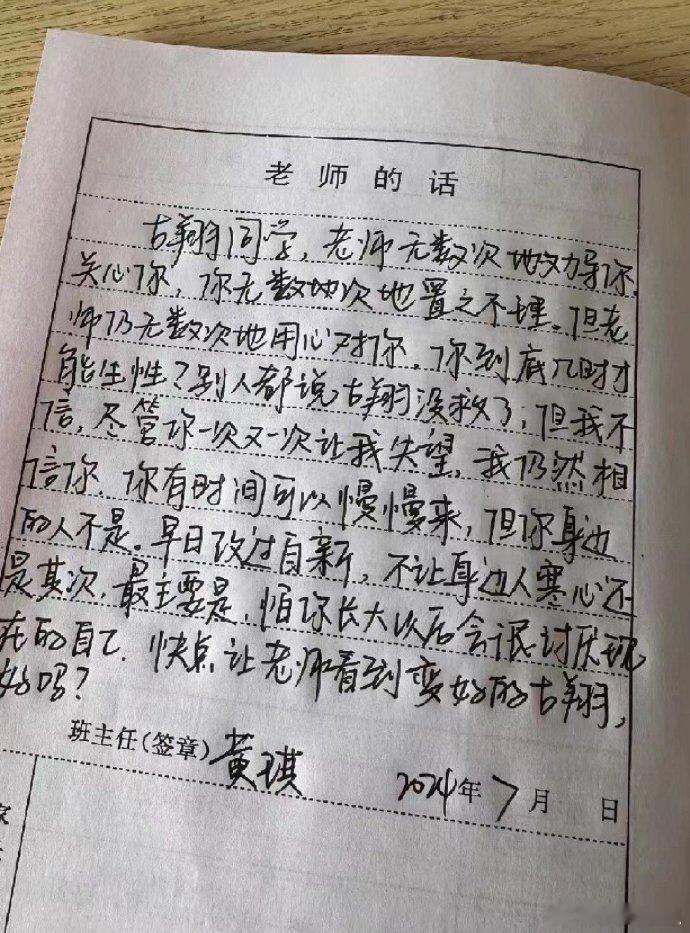 老师的话
古翔同学，老师无数次地劝导你，
关心你，你无数地次地置之不理。但老
师仍无数次地用心对你。你到底几时才
能生性？别人都说古翔没救了，但我不
信，尽管你一次又一次让我失望，我仍然相
信你。你有时间可以慢慢来，但你身边
的人不是。早日改过自新，不让身边人寒心还
是其次，最主要是，怕你长大以后会很讨厌现
在的自己。快点让老师看到变好的古翔，
好吗？
班主任(签章) 黄琪 2024年7月 日